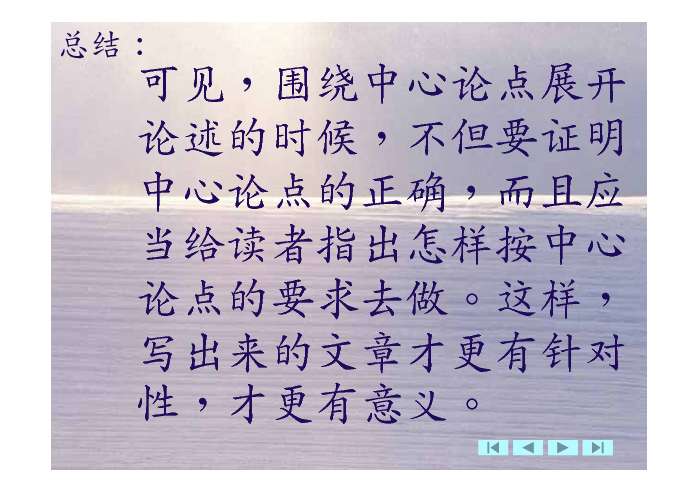 总结：
可见，围绕中心论点展开
论述的时候，不但要证明
中心论点的正确，而且应
当给读者指出怎样按中心
论点的要求去做。这样，
写出来的文章才更有针对
性，才更有意义。